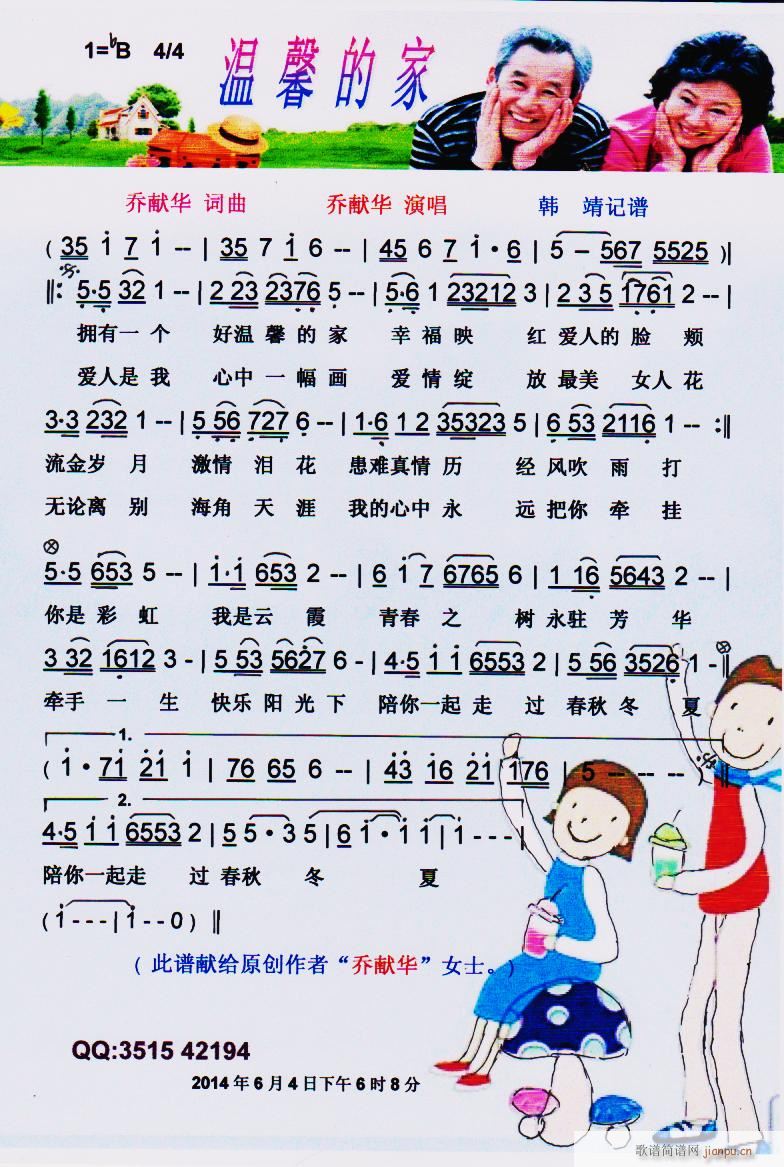 1=♭B 4/4 温馨的家
乔献华 词曲 乔献华 演唱 韩 靖记谱
( 35 1 7 1 -- | 35 7 1 6 -- | 45 6 7 1·6 | 5 – 567 5525 )|
‖: 5·5 32 1 -- | 2 23 2376 5 -- | 5·6 1 23212 3 | 2 3 5 1761 2 -- |
拥有一个 好温馨的家 幸福映 红爱人的脸颊
爱人是我 心中一幅画 爱情绽 放最美 女人花
3·3 232 1 -- | 5 56 727 6 -- | 1·6 1 2 35323 5 | 6 53 2116 1 -- :‖
流金岁月 激情泪花 患难真情历 经风吹雨打
无论离别 海角天涯 我的心中永 远把你牵挂
5·5 653 5 -- | 1·1 653 2 -- | 6 1 7 6765 6 | 1 16 5643 2 -- |
你是彩虹 我是云霞 青春之 树永驻芳华
3 32 1612 3 - | 5 53 5627 6 - | 4·5 1 1 6553 2 | 5 56 3526 1 - ‖
牵手一生 快乐阳光下 陪你一起走 过春秋冬夏
1.
( 1·71 21 1 | 76 65 6 -- | 43 16 21 176 | 5 - -- ) ‖
2.
4·5 1 1 6553 2 | 5 5·3 5 | 6 1·1 1 | 1 - - - |
陪你一起走 过春秋 冬 夏
( 1 - - - | 1 - - 0 ) ‖
( 此谱献给原创作者“乔献华”女士。)
QQ:3515 42194
2014年6月4日下午6时8分
歌谱简谱网 jianpu.cn